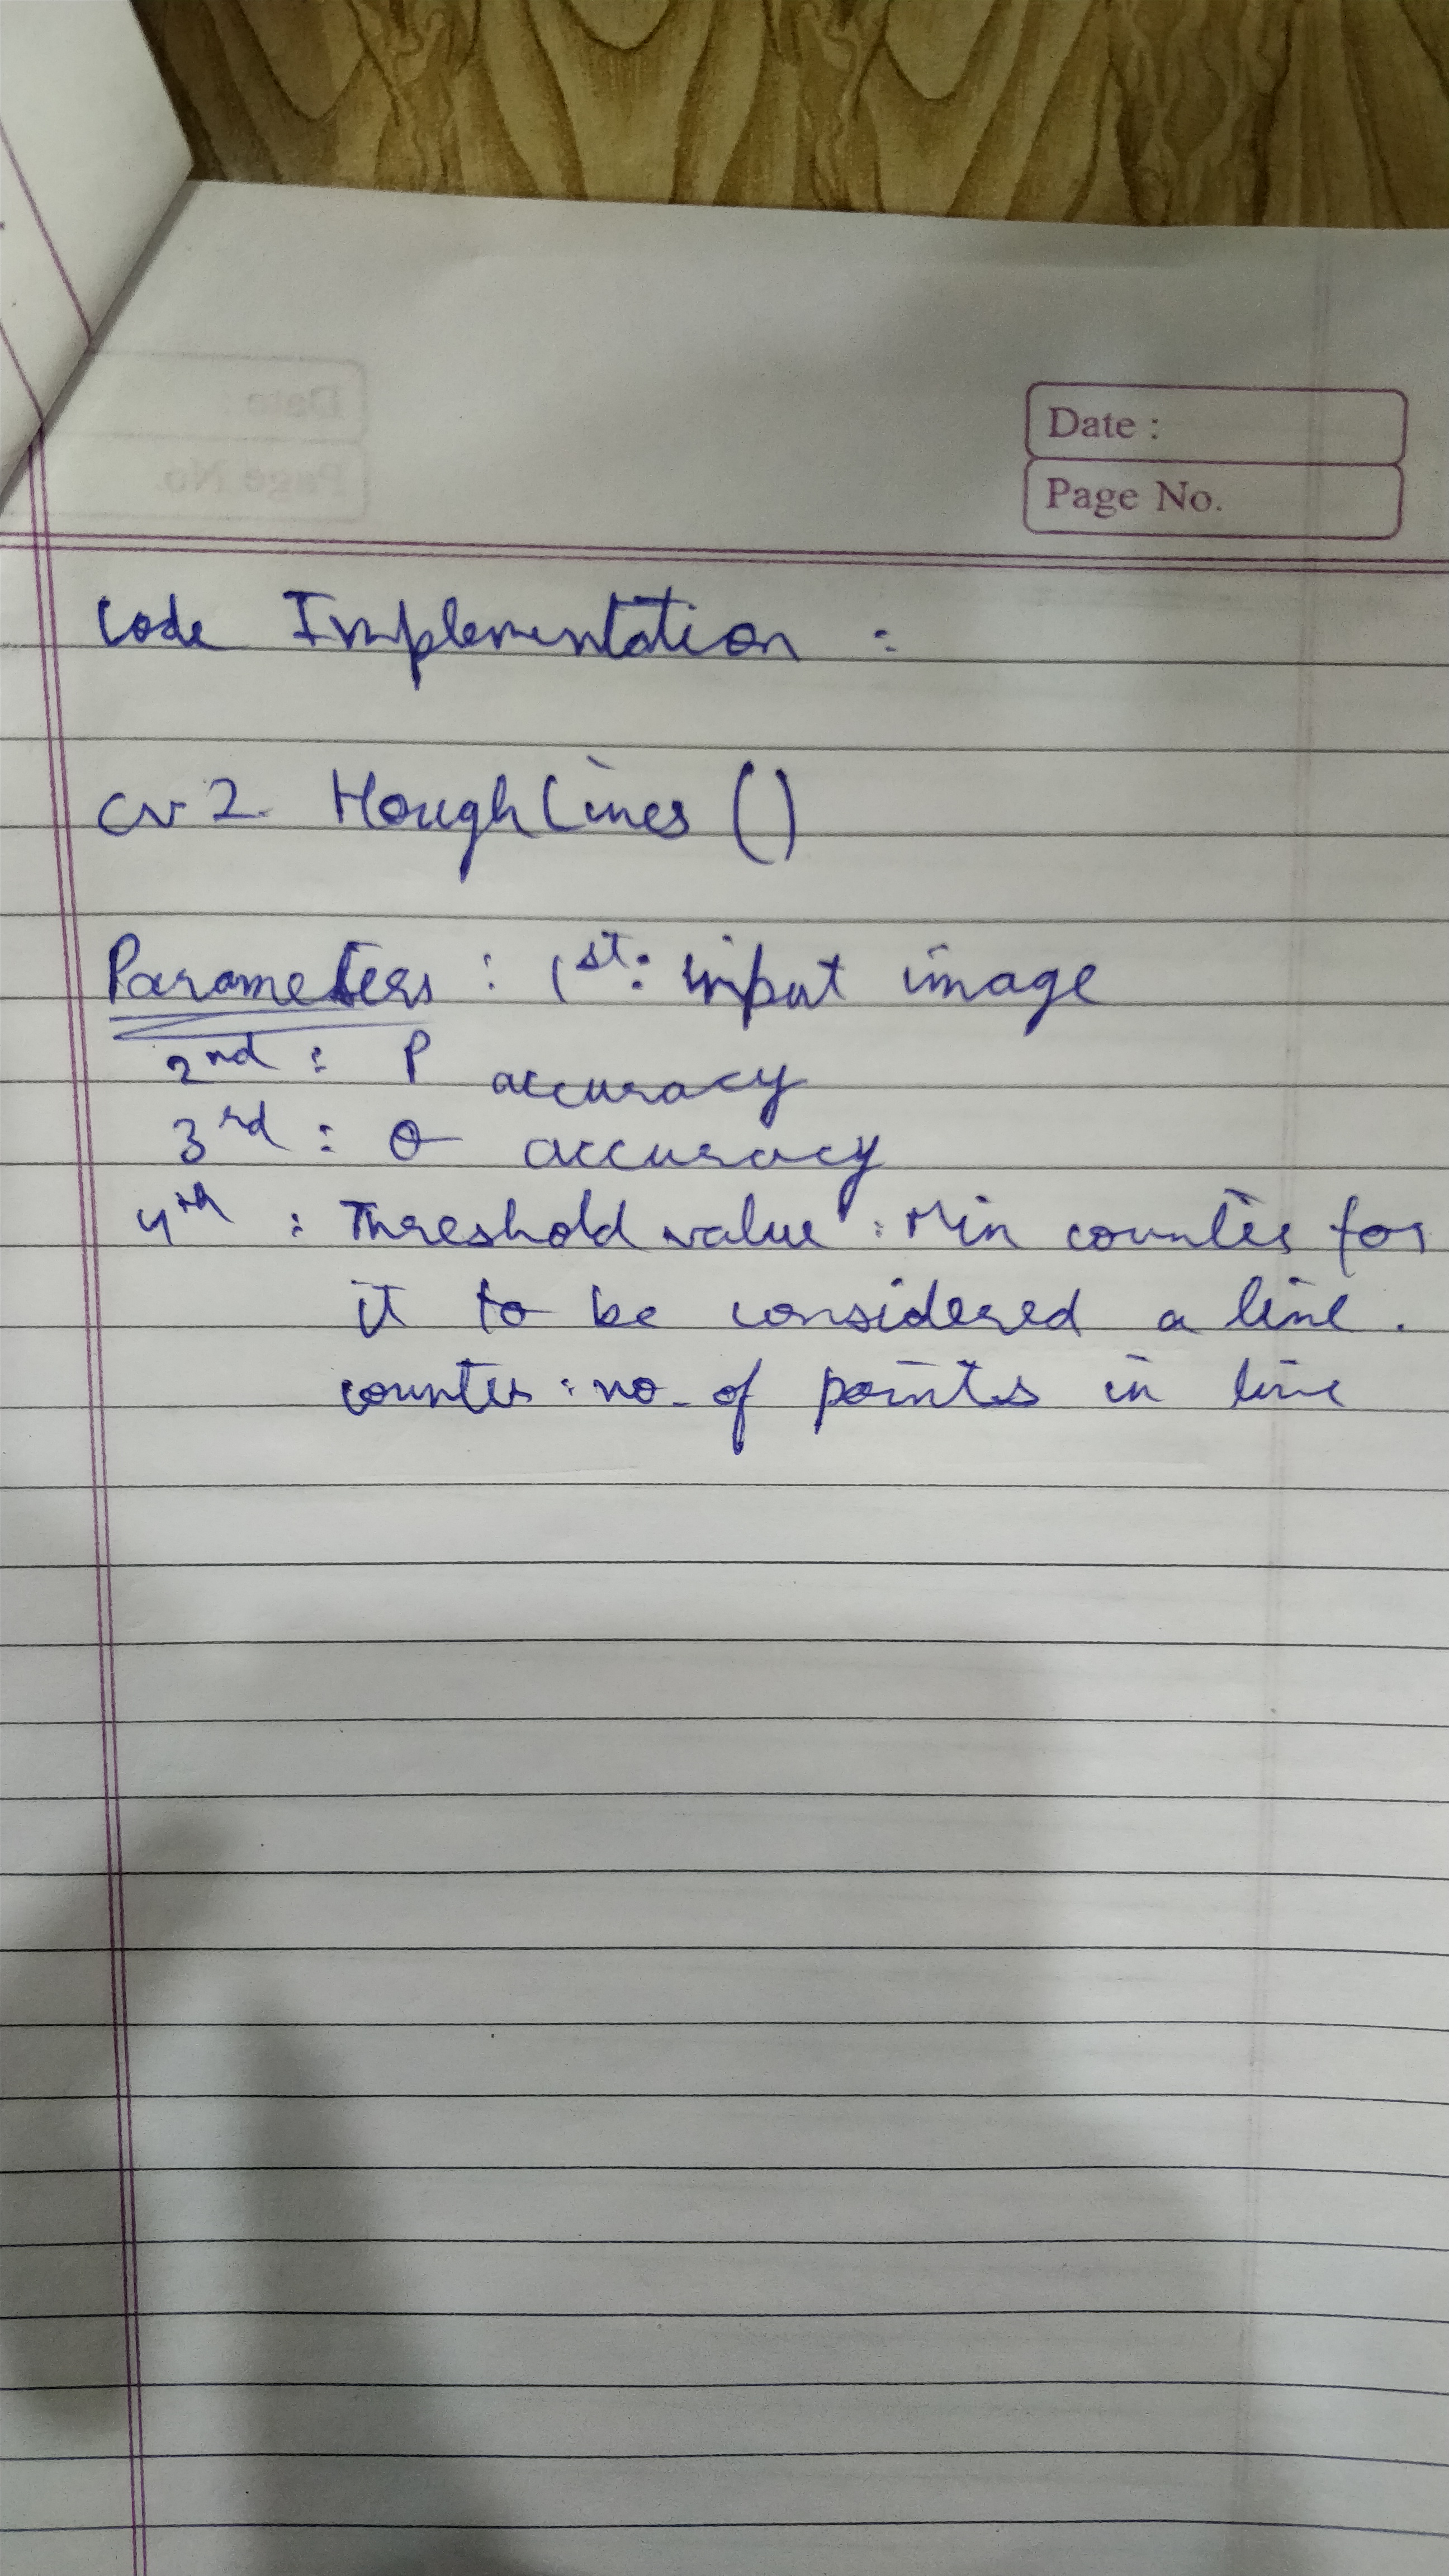 Date :
Page No.
Code Implementation :
cv2. HoughLines ()
Parameters : 1st: input image
2nd : ρ accuracy
3rd : θ accuracy
4th : Threshold value : Min counter for
it to be considered a line.
counter : no. of points in line